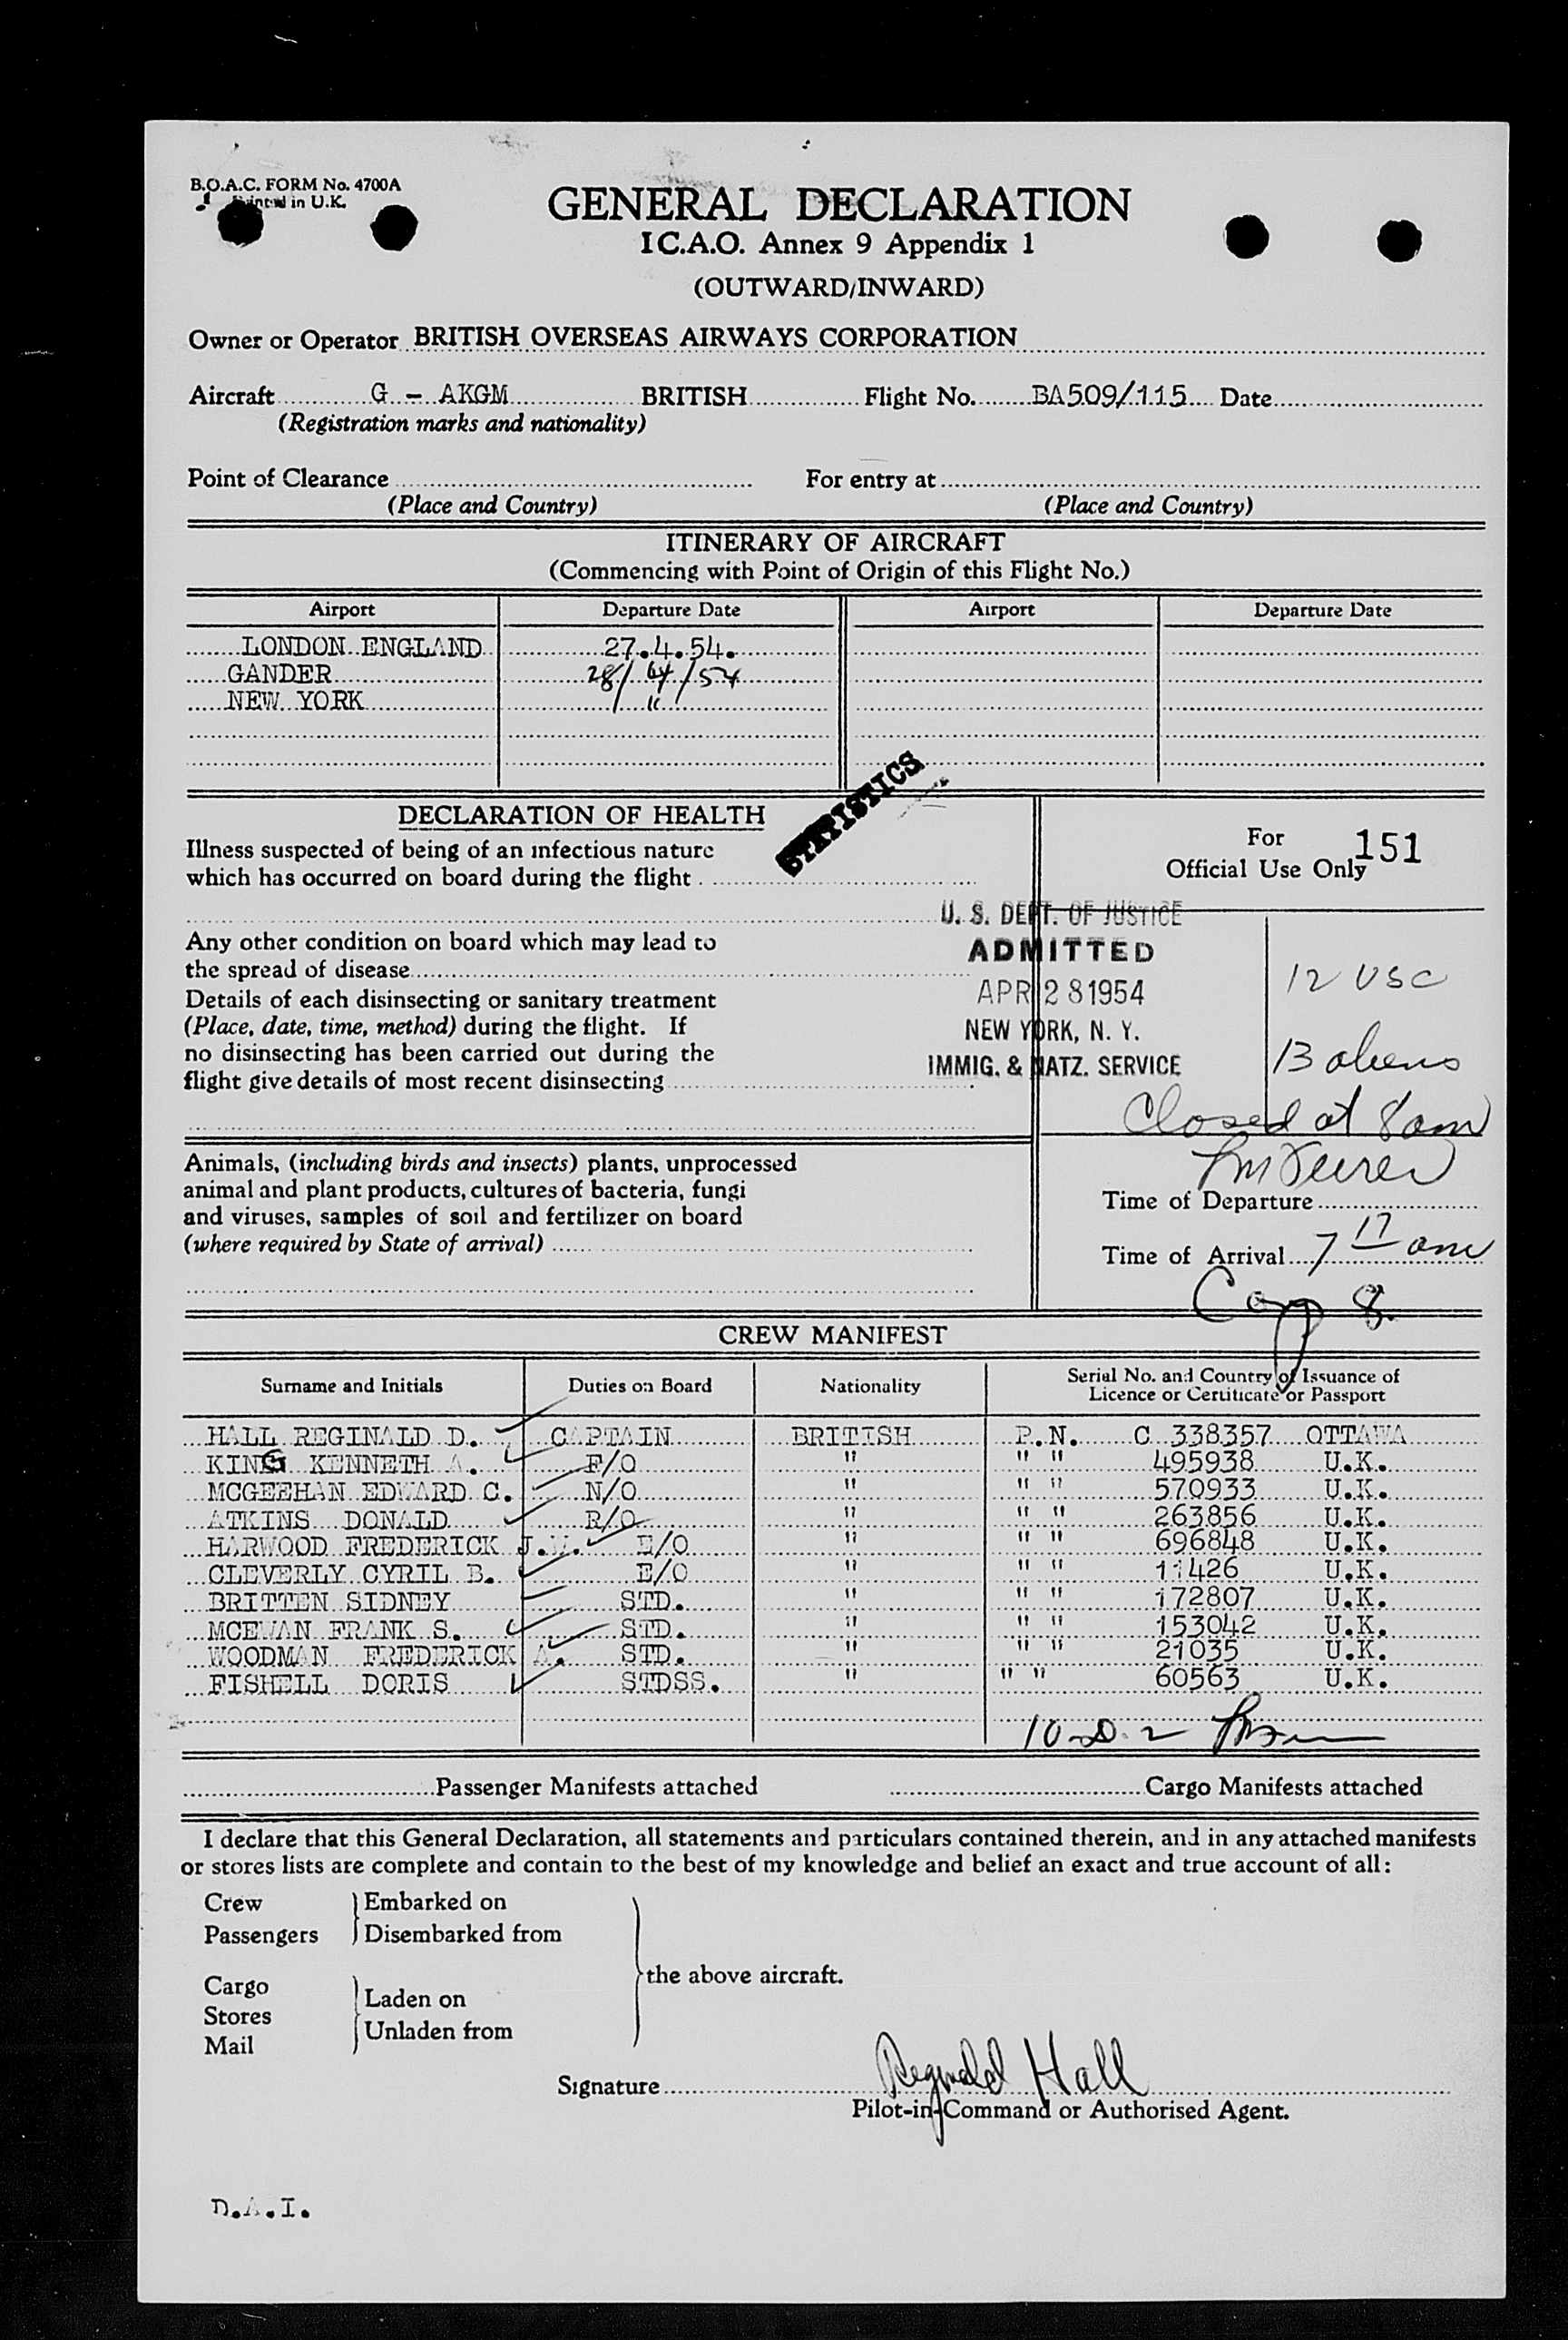 B.O.A.C. FORM No. 4700A
Printed in U.K.
GENERAL DECLARATION
I C.A.O. Annex 9 Appendix 1
(OUTWARD/INWARD)
Owner or Operator BRITISH OVERSEAS AIRWAYS CORPORATION
Aircraft G - AKGM BRITISH Flight No. BA509/115 Date
(Registration marks and nationality)
Point of Clearance For entry at
(Place and Country) (Place and Country)
ITINERARY OF AIRCRAFT
(Commencing with Point of Origin of this Flight No.)
Airport Departure Date Airport Departure Date
LONDON ENGLAND 27.4.54.
GANDER 28/4/54
NEW YORK "
STATISTICS
DECLARATION OF HEALTH
Illness suspected of being of an infectious nature
which has occurred on board during the flight
For
Official Use Only 151
Any other condition on board which may lead to
the spread of disease
Details of each disinsecting or sanitary treatment
(Place, date, time, method) during the flight. If
no disinsecting has been carried out during the
flight give details of most recent disinsecting
U. S. DEPT. OF JUSTICE
ADMITTED
APR 28 1954
NEW YORK, N. Y.
IMMIG. & NATZ. SERVICE
12 USC
13 aliens
Closed at 8 am
Animals, (including birds and insects) plants, unprocessed
animal and plant products, cultures of bacteria, fungi
and viruses, samples of soil and fertilizer on board
(where required by State of arrival)
Time of Departure
Time of Arrival 7 17 am
8
CREW MANIFEST
Surname and Initials Duties on Board Nationality Serial No. and Country of Issuance of
Licence or Certificate or Passport
HALL REGINALD D. CAPTAIN BRITISH P.N. C 338357 OTTAWA
KING KENNETH A. F/O " " " 495938 U.K.
MCGEEHAN EDWARD C. N/O " " " 570933 U.K.
ATKINS DONALD R/O " " " 263856 U.K.
HARWOOD FREDERICK J.W. E/O " " " 696848 U.K.
CLEVERLY CYRIL B. E/O " " " 11426 U.K.
BRITTEN SIDNEY STD. " " " 172807 U.K.
MCEWAN FRANK S. STD. " " " 153042 U.K.
WOODMAN FREDERICK A. STD. " " " 21035 U.K.
FISHELL DORIS STDSS. " " " 60563 U.K.
Passenger Manifests attached Cargo Manifests attached
I declare that this General Declaration, all statements and particulars contained therein, and in any attached manifests
or stores lists are complete and contain to the best of my knowledge and belief an exact and true account of all:
Crew Embarked on
Passengers Disembarked from
the above aircraft.
Cargo
Stores Laden on
Mail Unladen from
Signature Reginald Hall
Pilot-in-Command or Authorised Agent.
D.A.I.